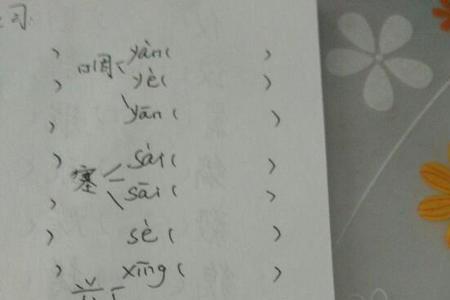 习
) yàn( )
咽
) yè( )
) yān( )
) sài( )
塞
) sāi( )
) sè( )
) xīng( )